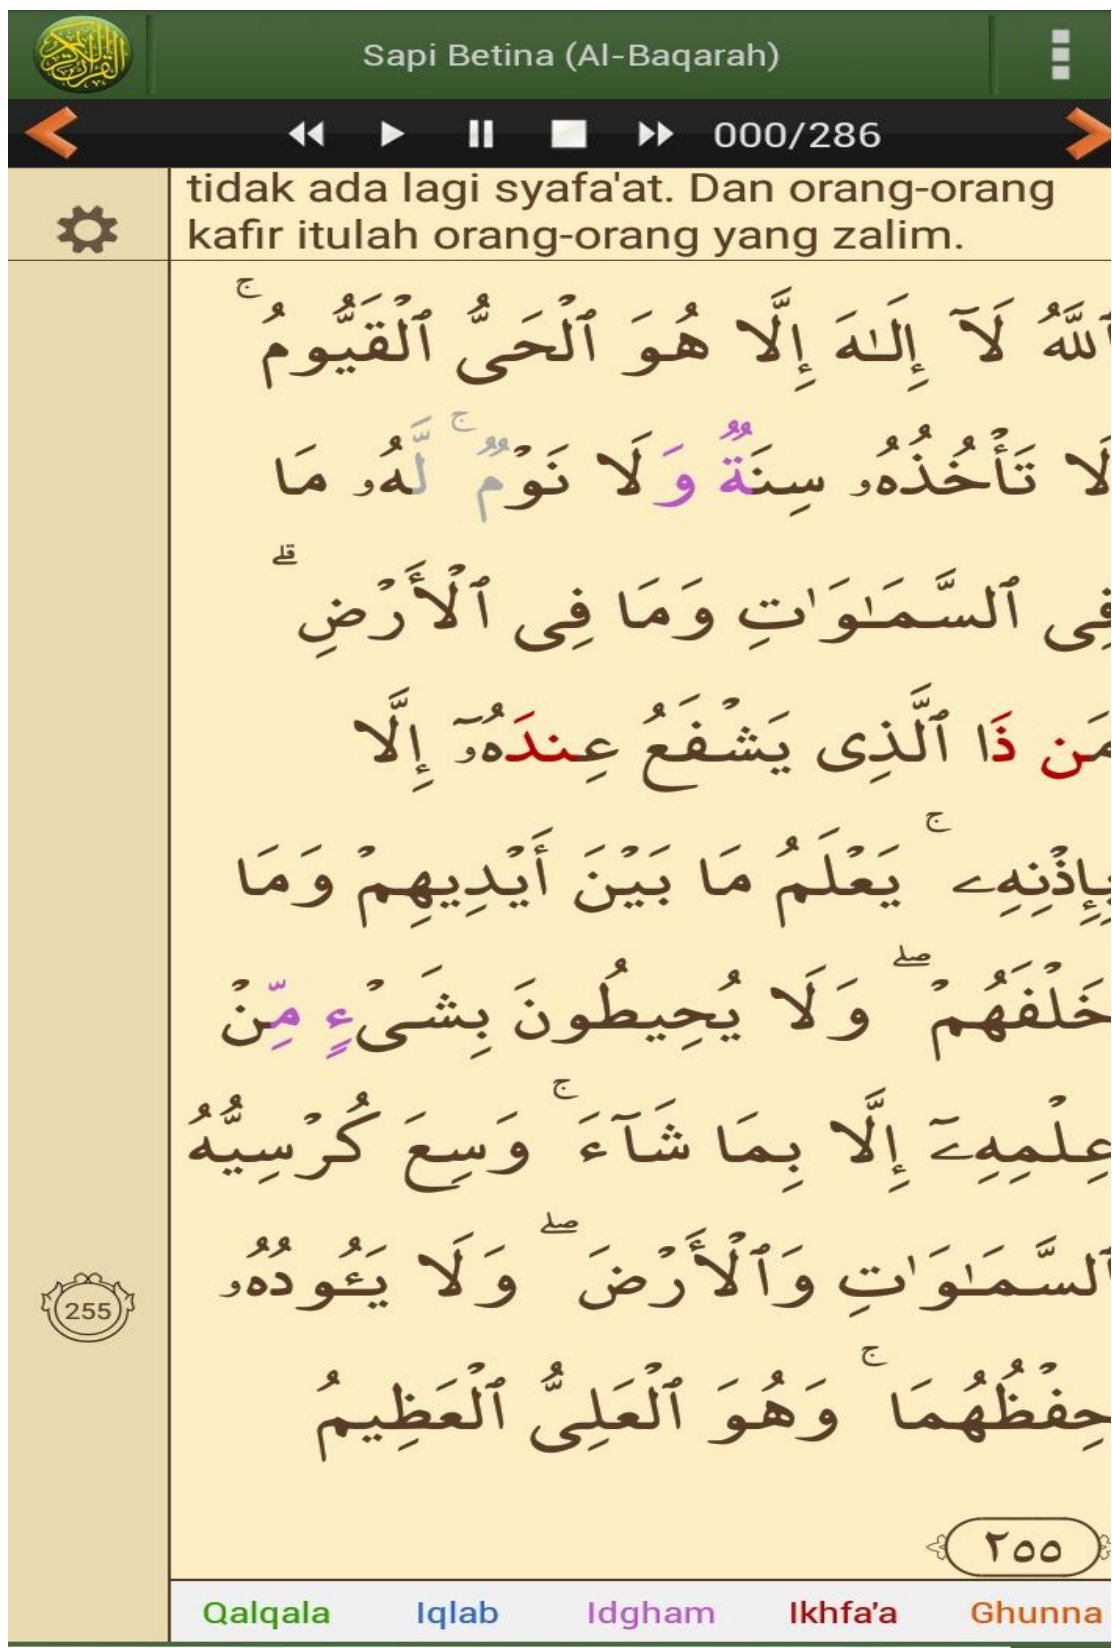 Sapi Betina (Al-Baqarah)
000/286
tidak ada lagi syafa'at. Dan orang-orang
kafir itulah orang-orang yang zalim.
ٱللَّهُ لَآ إِلَـٰهَ إِلَّا هُوَ ٱلْحَىُّ ٱلْقَيُّومُ ۚ
لَا تَأْخُذُهُۥ سِنَةٌ وَلَا نَوْمٌ ۚ لَّهُۥ مَا
فِى ٱلسَّمَـٰوَٰتِ وَمَا فِى ٱلْأَرْضِ ۗ
مَن ذَا ٱلَّذِى يَشْفَعُ عِندَهُۥٓ إِلَّا
بِإِذْنِهِۦ ۚ يَعْلَمُ مَا بَيْنَ أَيْدِيهِمْ وَمَا
خَلْفَهُمْ ۖ وَلَا يُحِيطُونَ بِشَىْءٍ مِّنْ
عِلْمِهِۦٓ إِلَّا بِمَا شَآءَ ۚ وَسِعَ كُرْسِيُّهُ
ٱلسَّمَـٰوَٰتِ وَٱلْأَرْضَ ۖ وَلَا يَـُٔودُهُۥ
255
حِفْظُهُمَا ۚ وَهُوَ ٱلْعَلِىُّ ٱلْعَظِيمُ
٢٥٥
Qalqala Iqlab Idgham Ikhfa'a Ghunna